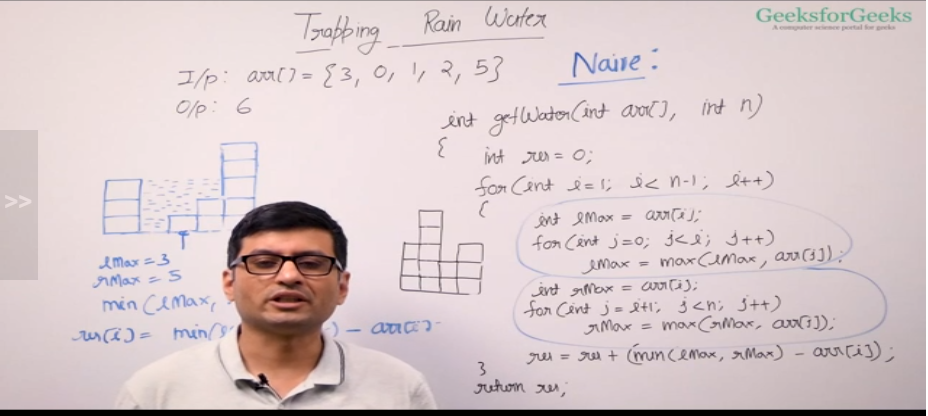 GeeksforGeeks
A computer science portal for geeks
Trapping Rain Water
I/p: arr[] = {3, 0, 1, 2, 5}
O/p: 6
lMax = 3
rMax = 5
min (lMax,
res[i] = min(l - arr[i]
Naive:
int getWater(int arr[], int n)
{
int res = 0;
for(int i=1; i< n-1; i++)
{
int lMax = arr[i];
for(int j=0; j<i; j++)
lMax = max(lMax, arr[j]);
int rMax = arr[i];
for(int j=i+1; j<n; j++)
rMax = max(rMax, arr[j]);
res = res + (min(lMax, rMax) - arr[i]);
}
return res;
>>